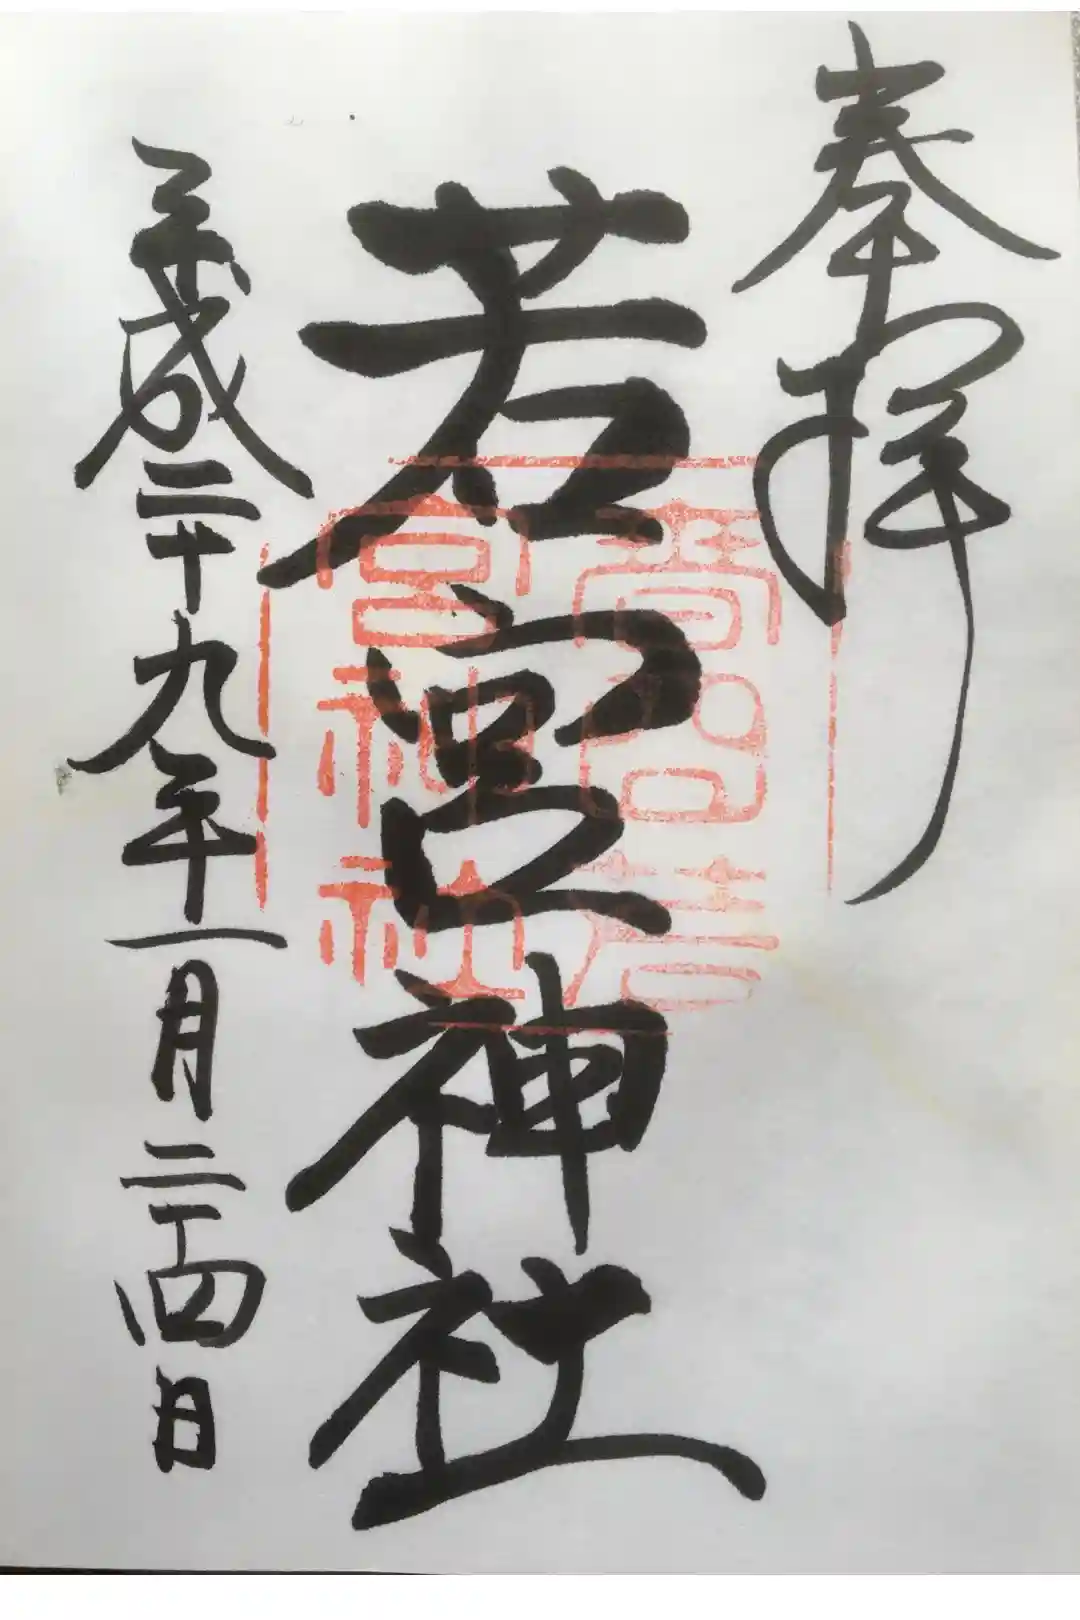 奉拝
若宮神社
平成二十九年一月二十四日
若
宮神社